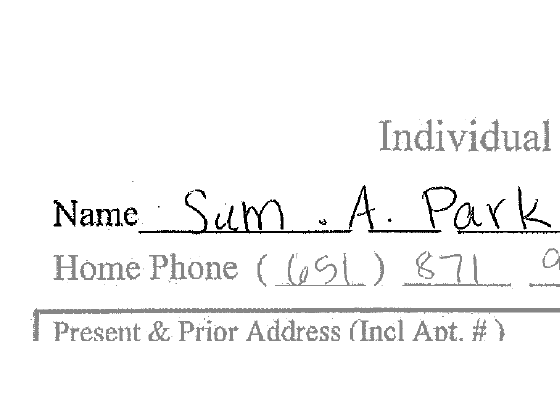 Individual
Name Sum . A. Park
Home Phone (651) 871 9
Present & Prior Address (Incl Apt. #)